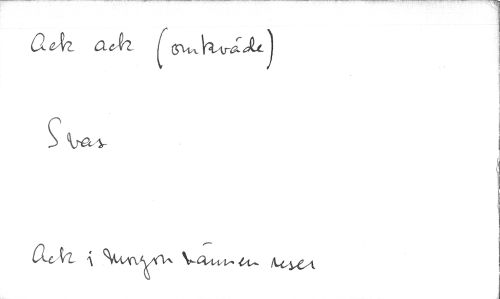 Ack ack (omkväde)
Svas
Ack i morgon vännen reser